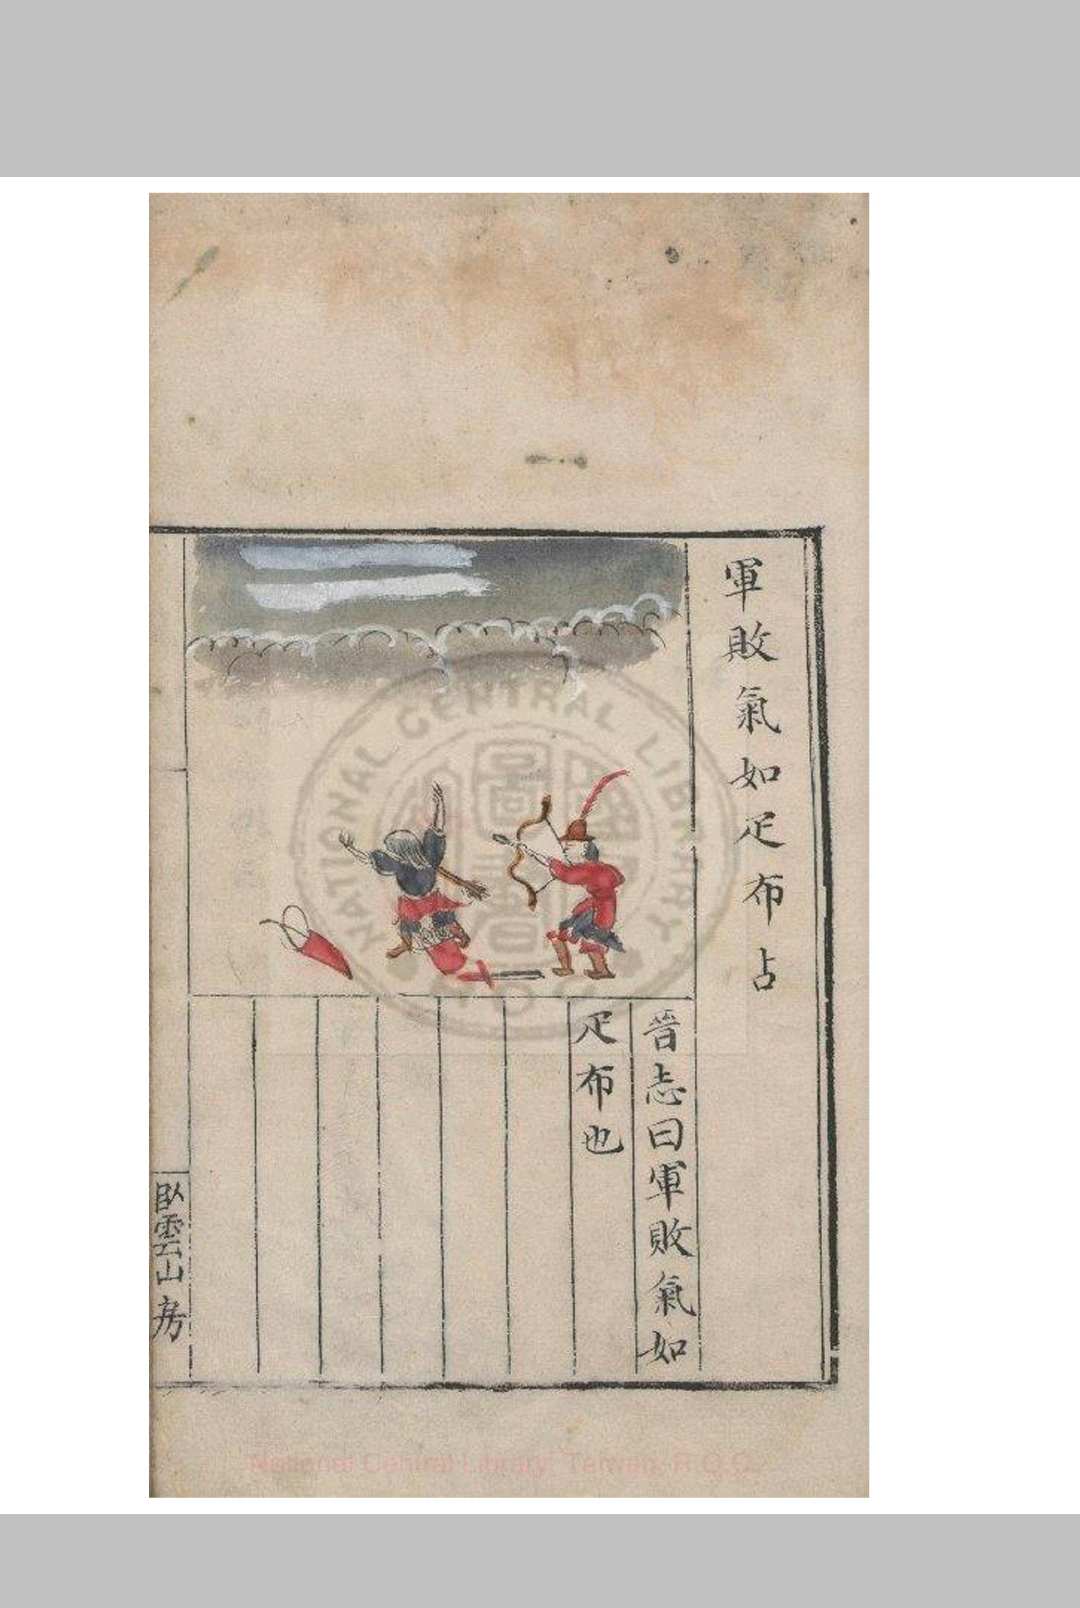 軍敗氣如疋布占
晉志曰軍敗氣如
疋布也
臥雲山房
NATIONAL CENTRAL LIBRARY
R.O.C.
National Central Library, Taiwan, R.O.C.